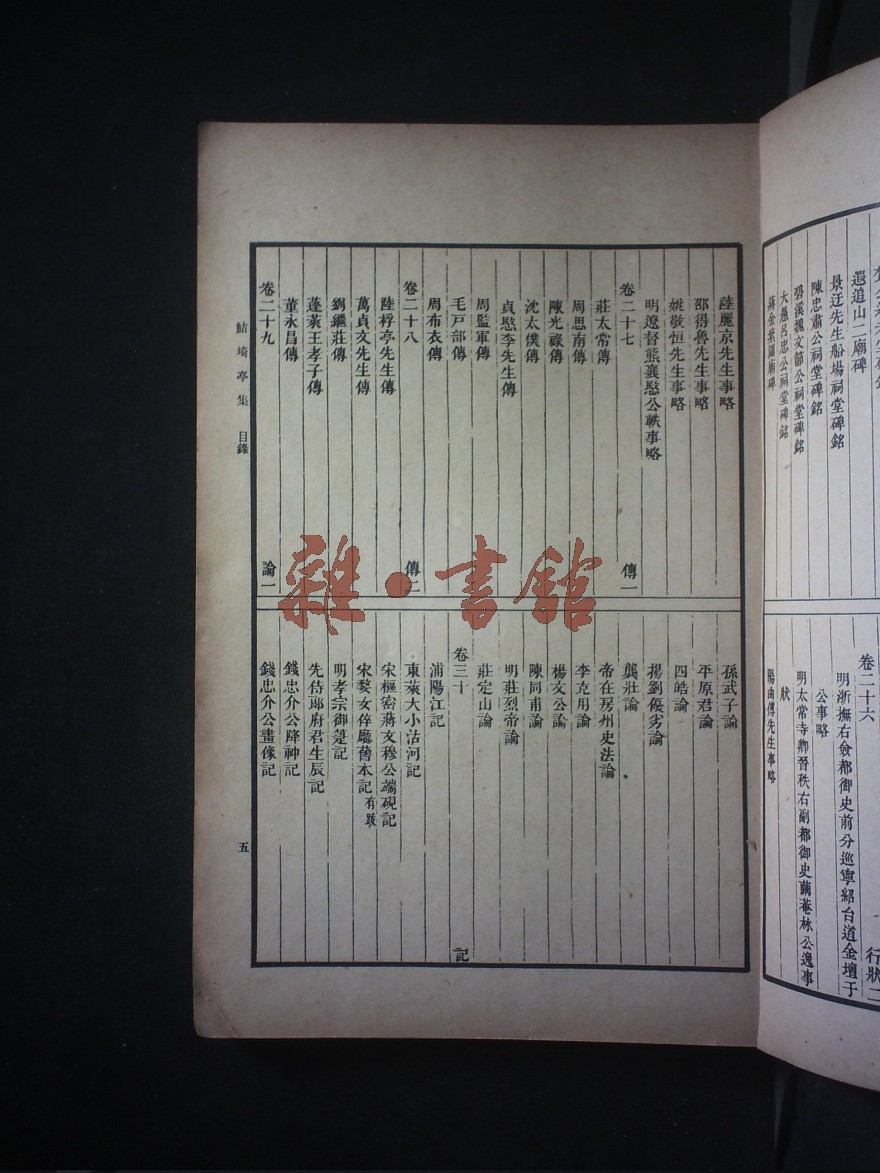 遐追山二廟碑
景迂先生船場祠堂碑銘
陳忠肅公祠堂碑銘
碧溪魏文節公祠堂碑銘
大愚呂忠公祠堂碑銘
卷二十六
行狀二
明浙撫右僉都御史前分巡寧紹台道金壇于
公事略
明太常寺卿晉秩右副都御史繭菴林公逸事
狀
陽曲傅先生事略
陸麗京先生事略
邵得魯先生事略
姚敬恒先生事略
明遼督熊襄愍公軼事略
卷二十七
傳一
莊太常傳
周思南傳
陳光祿傳
沈太僕傳
貞愍李先生傳
周監軍傳
毛戸部傳
周布衣傳
卷二十八
傳二
陸桴亭先生傳
萬貞文先生傳
劉繼莊傳
蓬萊王孝子傳
董永昌傳
卷二十九
論一
孫武子論
平原君論
四皓論
揚劉優劣論
龔壯論
帝在房州史法論
李克用論
楊文公論
陳同甫論
明莊烈帝論
莊定山論
卷三十
記
浦陽江記
東萊大小沽河記
宋樞密蔣文穆公端硯記
宋婺女倅廳舊本記有跋
明孝宗御筆記
先侍郎府君生辰記
錢忠介公降神記
錢忠介公畫像記
鮚埼亭集 目錄
五
雜·書館